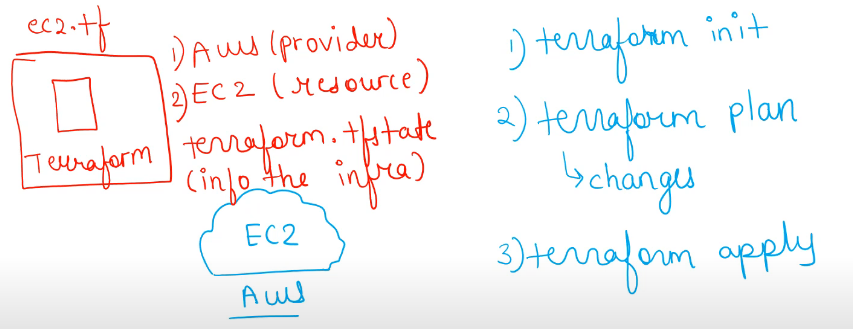 ec2.tf
Terraform
1) Aws (provider)
2) EC2 (resource)
terraform.tfstate
(info the infra)
EC2
Aws
1) terraform init
2) terraform plan
↳ changes
3) terraform apply